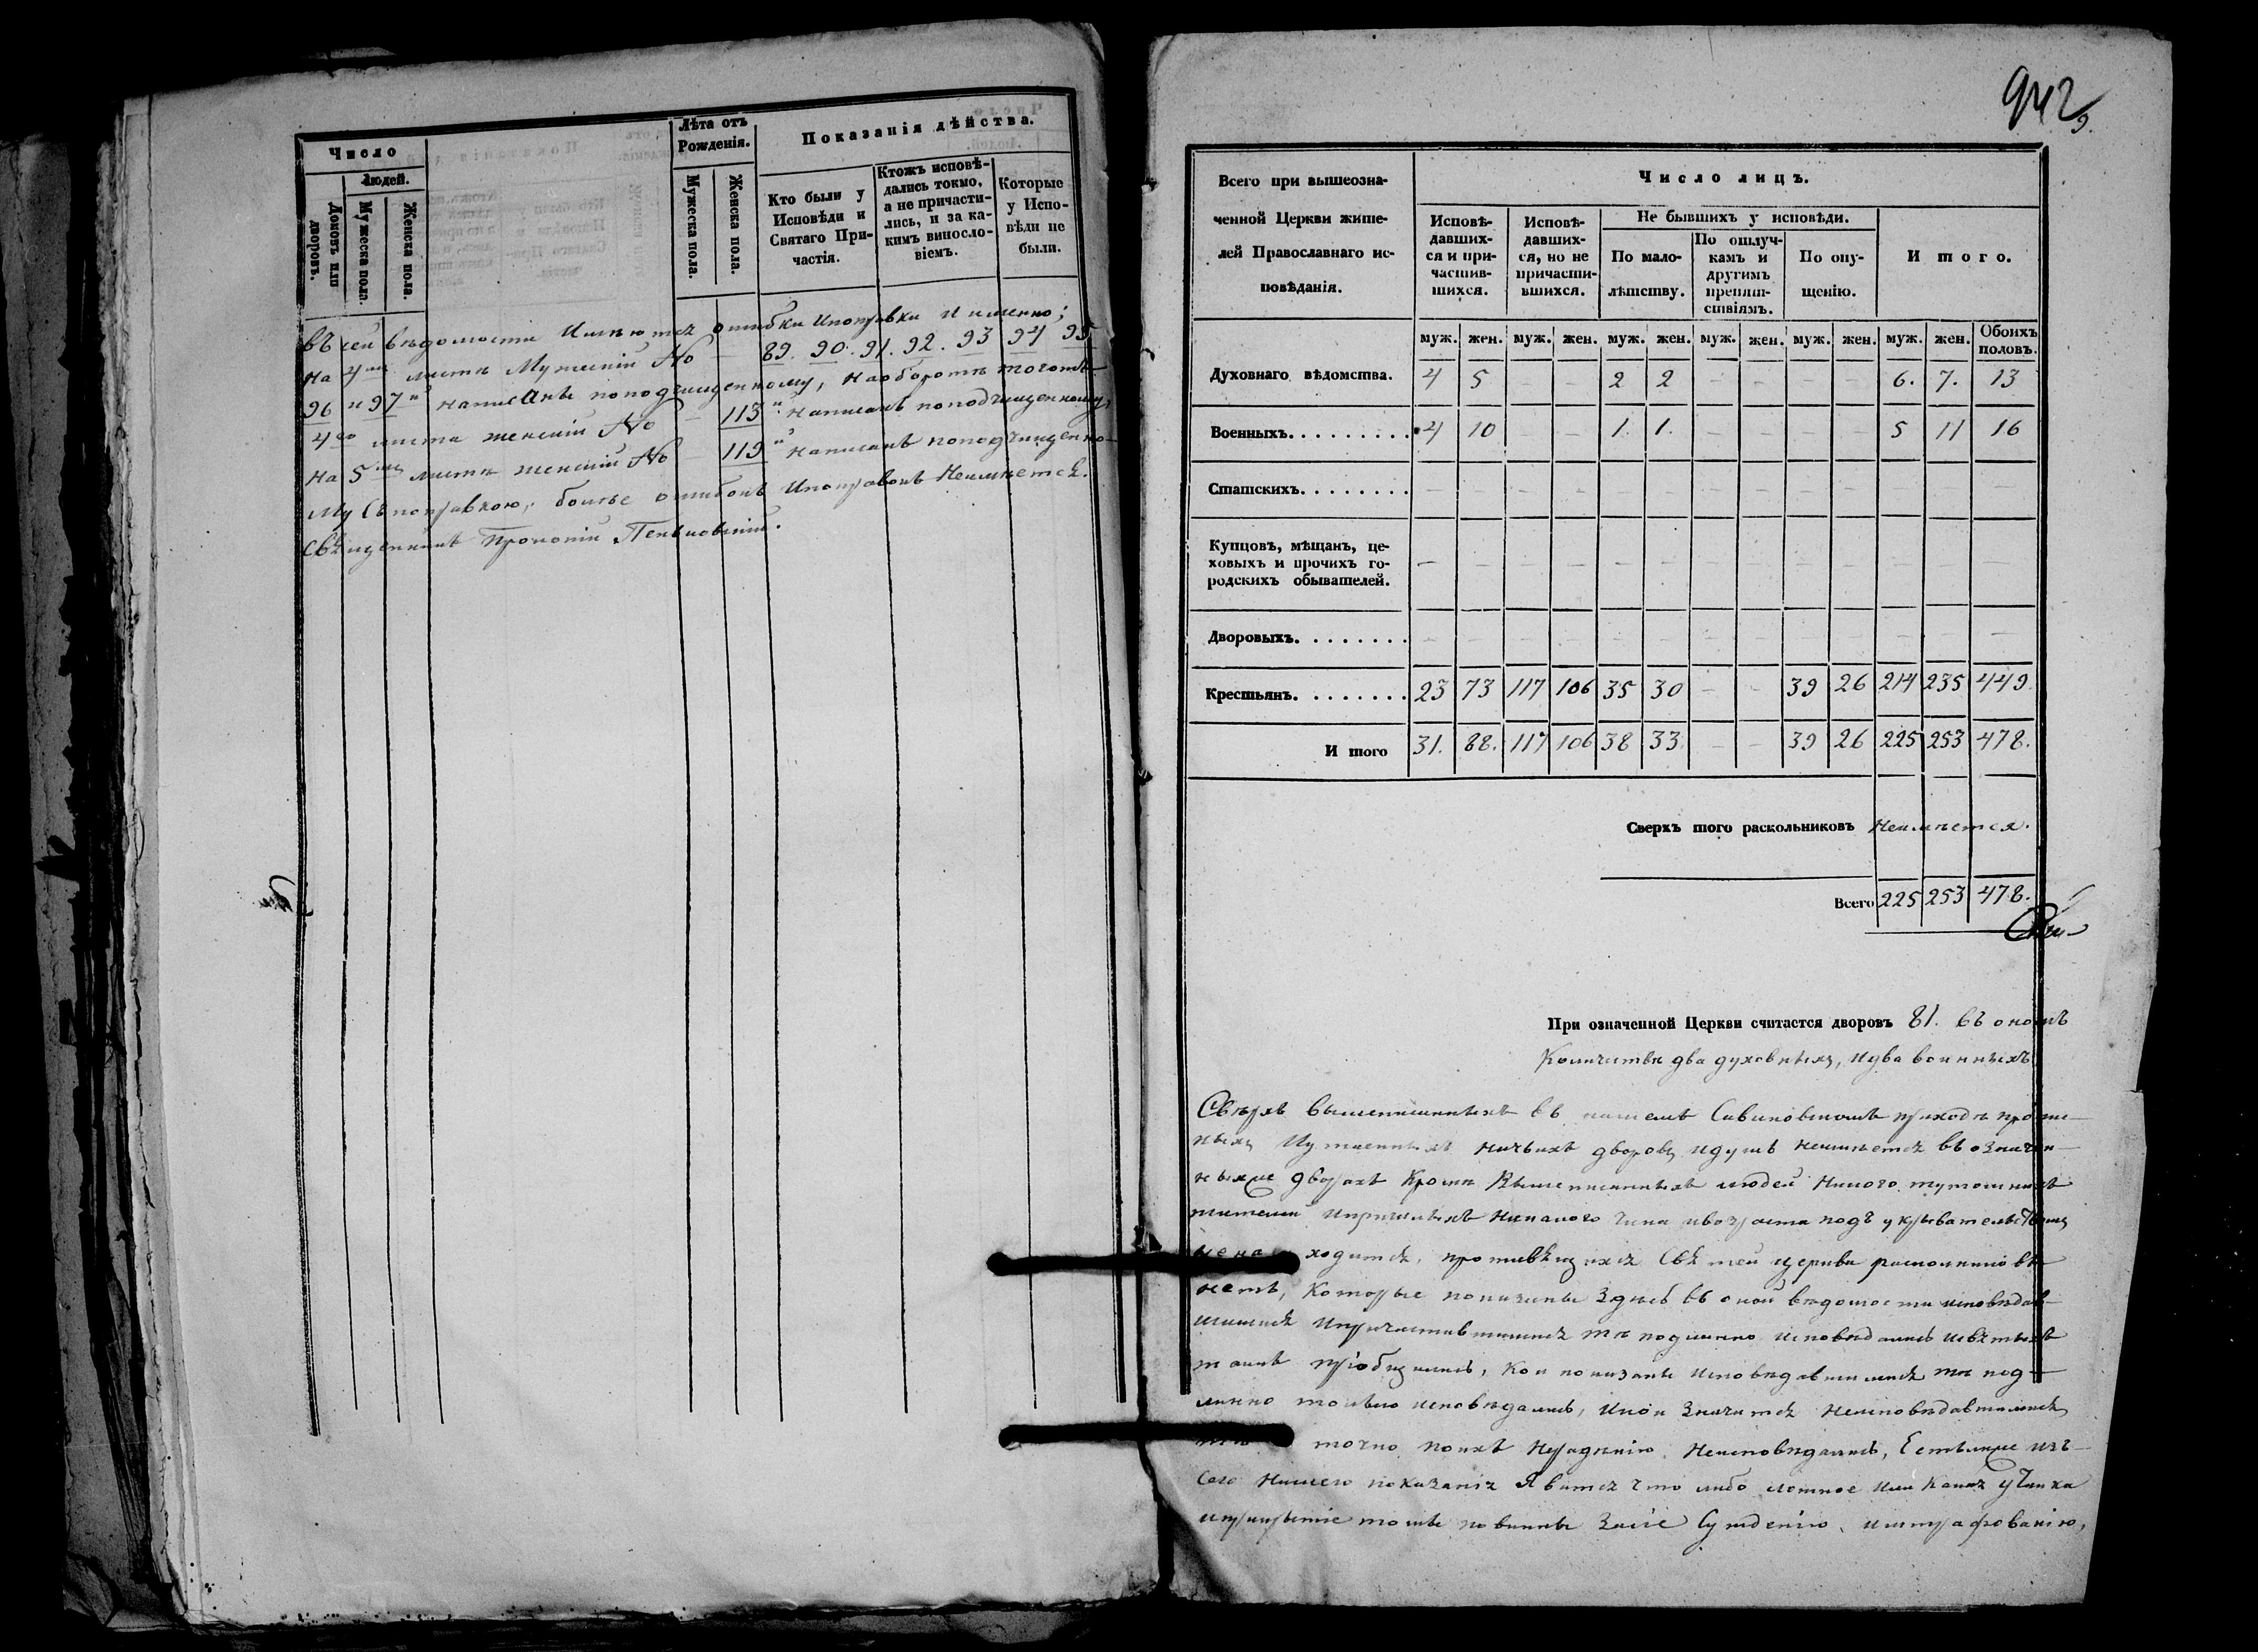 Число
Людей.
Домовъ или дворовъ.
Мужеска пола.
Женска пола.
Лѣта отъ Рожденія.
Мужеска пола.
Женска пола.
Показанія дѣйства.
Кто были у Исповѣди и Святаго Причастія.
Ктожъ исповѣдались токмо, а не причастились, и за какимъ винословіемъ.
Которые у Исповѣди не были.
Въ сей вѣдомости Имѣютсѧ ошибки Ипоправки Именно;
На 4мъ листѣ Мужескій № 89. 90. 91. 92. 93 94 95
96 и 97й написАны поподчищенному, наоборотѣ тогожъ
4го листа женскій № 113й написанъ поподчищенному,
на 5мъ листѣ женскій № 119й написанъ поподчищенно-
му Съпоправкою, болѣе ошибокъ Ипоправокъ Неимѣетсѧ.
Свѧщенникъ Прокопій
942
9.
Всего при вышеозначенной Церкви жителей Православнаго исповѣданія.
Число лицъ.
Исповѣдавшихся и причастившихся.
Исповѣдавшихся, но не причастившихся.
Не бывшихъ у исповѣди.
По малолѣтству.
По отлучкамъ и другимъ препятствіямъ.
По опущенію.
Итого.
муж. жен. муж. жен. муж. жен. муж. жен. муж. жен. муж. жен. Обоихъ половъ.
Духовнаго вѣдомства. 4 5 — — 2 2 — — — — 6. 7. 13
Военныхъ. 4 10 — 1. 1. — — — — 5 11 16
Статскихъ. — — — — — — — — — — — — —
Купцовъ, мѣщанъ, цеховыхъ и прочихъ городскихъ обывателей. — — — — — — — — — — — — —
Дворовыхъ. — — — — — — — — — — — — —
Крестьянъ. 23 73 117 106 35 30 — — 39 26 214 235 449.
Итого 31. 88. 117 106 38 33. — — 39 26 225 253 478.
Сверхъ того раскольниковъ Неимѣется.
Всего 225 253 478.
При означенной Церкви считается дворовъ 81. въ ономъ
Количествѣ два духовныхъ, идва военныхъ
Сверхъ вышеписанныхъ въ нашемъ Савиновскомъ приходѣ пропис-
ныхъ Иутаенныхъ ничьихъ дворовъ идушъ неимѣетсѧ въ означен-
ныхже дворахъ Кромѣ Вышеписанныхъ людей Никого тутошнихъ
жителей ипришлыхъ Никакого чина ивозраста подъ укрывательствомъ
ненаходитсѧ, противѧщихсѧ Свѧтей церкви раскольниковъ
нетъ, Которые показаны Здѣсь въ оной вѣдомости исповѣдав-
шимисѧ Ипричастившимисѧ тѣ подлинно исповѣдались исвѧтыхъ
таинъ пріобщились, Кои показаны Исповѣдавшимисѧ тѣ под-
линно только исповѣдались, Икои Значатсѧ Неисповѣдавшимисѧ
тѣ точно поихъ Нераденію Неисповѣдались, Естьлиже изъ
Сего Нашего показаніѧ Явитсѧ что либо ложное или Какаѧ утайка
иприкрытіе тожъ повинны Засіе Сужденію, иштрафованію,